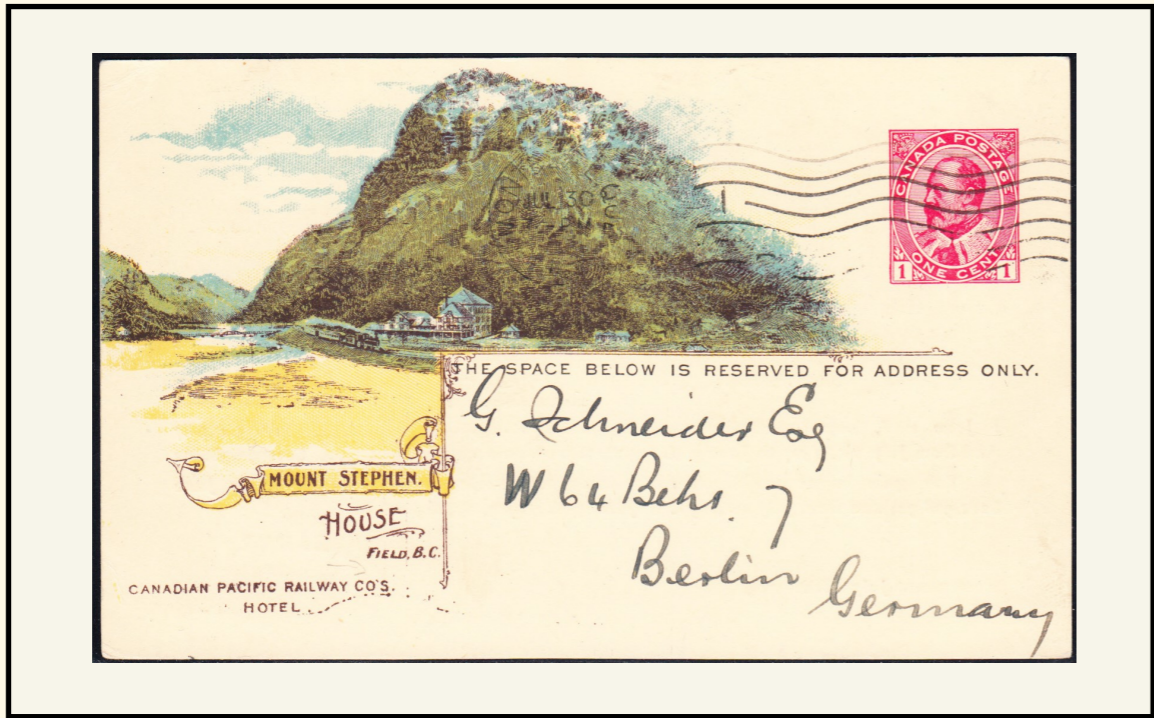 CANADA POSTAGE
1 ONE CENT 1
JUL 30
THE SPACE BELOW IS RESERVED FOR ADDRESS ONLY.
G. Schneider Esq
W 64 Behr. 7
Berlin
Germany
MOUNT STEPHEN.
HOUSE
FIELD, B.C.
CANADIAN PACIFIC RAILWAY CO'S.
HOTEL